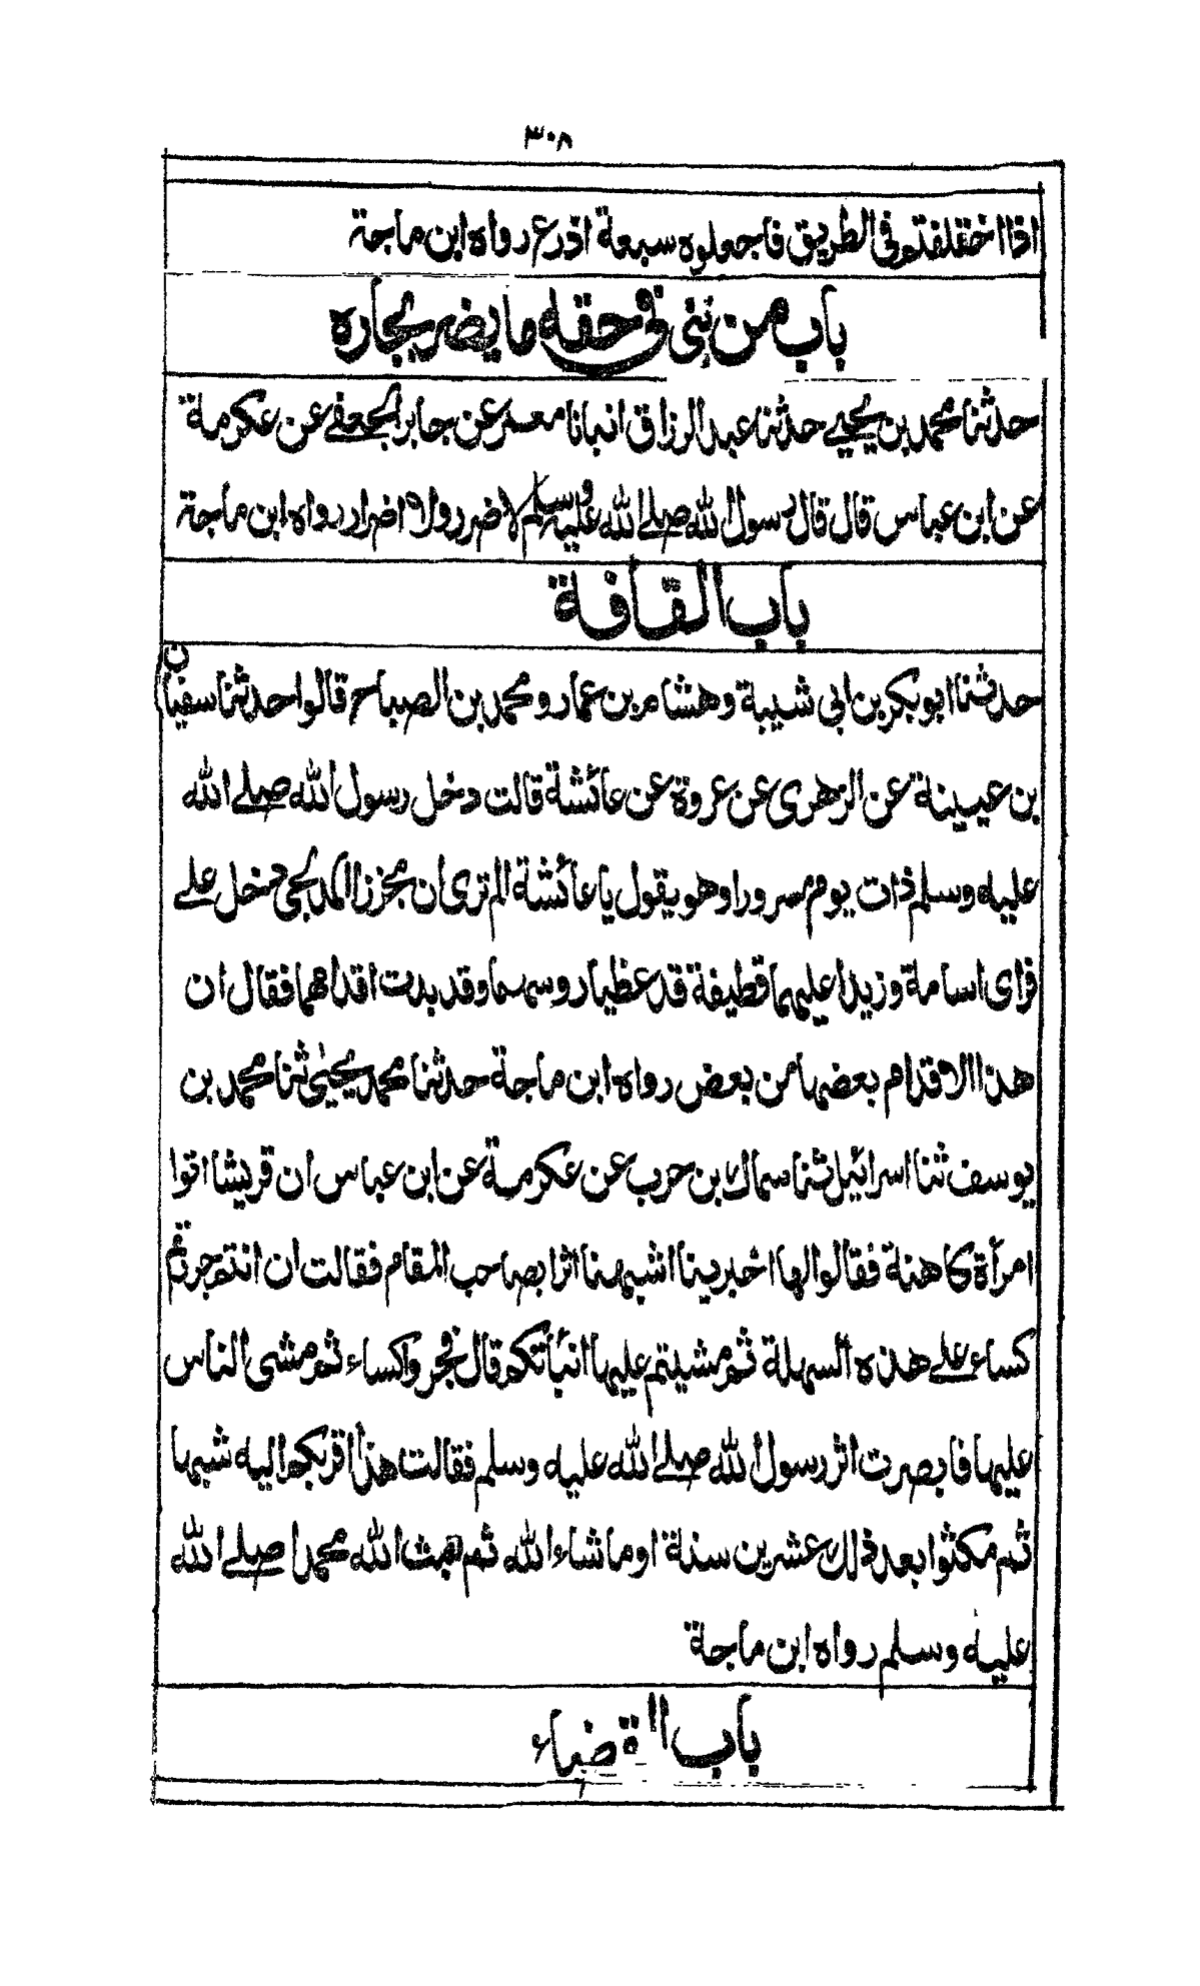 ٣٠٨
اذا اختلفتم فى الطريق فاجعلوه سبعة اذرع رواه ابن ماجة
باب من بنى فى حقه ما يضر بجاره
حدثنا محمد بن يحيى حدثنا عبد الرزاق انبانا معمر عن جابر الجعفى عن عكرمة
عن ابن عباس قال قال رسول الله صلى الله عليه وسلم لا ضرر ولا اضرار رواه ابن ماجة
باب القافة
حدثنا ابو بكر بن ابى شيبة وهشام بن عمار ومحمد بن الصباح قالوا حدثنا سفيان
بن عيينة عن الزهرى عن عروة عن عائشة قالت دخل رسول الله صلى الله
عليه وسلم ذات يوم مسرورا وهو يقول يا عائشة الم ترى ان مجززا المدلجى دخل على
فراى اسامة وزيدا عليهما قطيفة قد غطيا روسهما وقد بدت اقدامهما فقال ان
هذا الاقدام بعضها من بعض رواه ابن ماجة حدثنا محمد يحيى ثنا محمد بن
يوسف ثنا اسرائيل ثنا سماك بن حرب عن عكرمة عن ابن عباس ان قريشا اتوا
امرأة كاهنة فقالوا لها اخبرينا اشبهنا اثرا بصاحب المقام فقالت ان انتم جررتم
كساء على هذه السهلة ثم مشيتم عليها انبأتكم قال فجروا كساء ثم مشى الناس
عليها فابصرت اثر رسول الله صلى الله عليه وسلم فقالت هذا اقربكم اليه شبها
ثم مكثوا بعد ذلك عشرين سنة او ما شاء الله ثم بعث الله محمدا صلى الله
عليه وسلم رواه ابن ماجة
باب القضاء